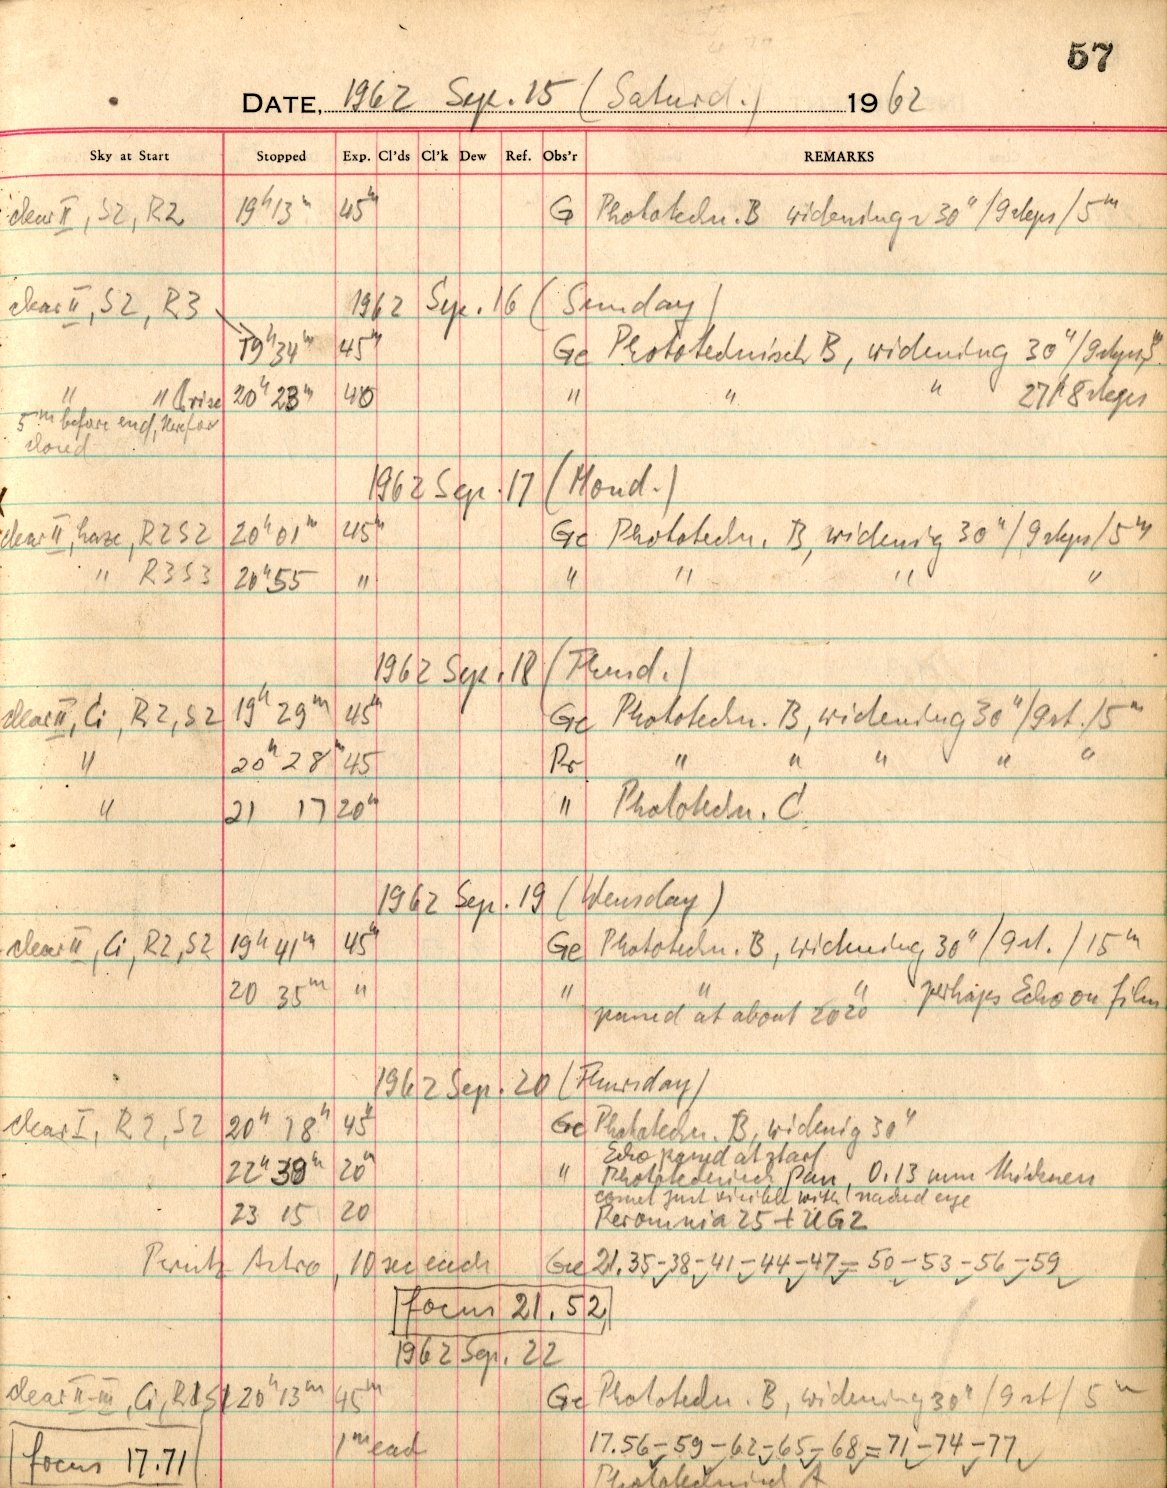 57
DATE, 1962 Sep. 15 (Saturd.) 1962
Sky at Start Stopped Exp. Cl'ds Cl'k Dew Ref. Obs'r REMARKS
clear II, S2, R2 19h 13m 45m G Phototechn. B widening ~ 30" / 9 steps / 5m
clear II, S2, R3 1962 Sep. 16 (Sunday)
19h 34m 45m Ge Phototechnisch B, widening 30" / 9 steps, 5m
" " rise 20h 23m 40 " " " 27 / 8 steps
5m before end, therefor
closed
1962 Sep. 17 (Mond.)
clear II, haze, R2 S2 20h 01m 45m Ge Phototechn. B, widenig 30" / 9 steps / 5m
" R3 S3 20h 55 " " " " "
1962 Sep. 18 (Thusd.)
clear II, Ci, R2, S2 19h 29m 45m Ge Phototechn. B, widening 30" / 9 st. / 5m
" 20h 28m 45 Pr " " " " "
" 21 17 20m " Phototechn. C
1962 Sep. 19 (Wensday)
clear II, Ci, R2, S2 19h 41m 45m Ge Phototechn. B, widening 30" / 9 st. / 15m
20 35m " " " " perhaps Echo on film
passed at about 2020
1962 Sep. 20 (Thursday)
clear I, R2, S2 20h 18h 45m Ge Phototechn. B, widenig 30"
Echo passed at start
22h 38m 20m " Phototechnisch Pan, 0.13 mm thickness
comet just visible with naked eye
23 15 20 Peromnia 25 + UG2
Perutz Astro, 10 sec each Ge 21.35-38-41-44-47=50-53-56-59
focus 21.52
1962 Sep. 22
clear II-III, Ci, R1, S1 20h 13m 45m Ge Phototechn. B, widening 30" / 9 st / 5m
1m each 17.56-59-62-65-68=71-74-77
focus 17.71
Phototechnisch A